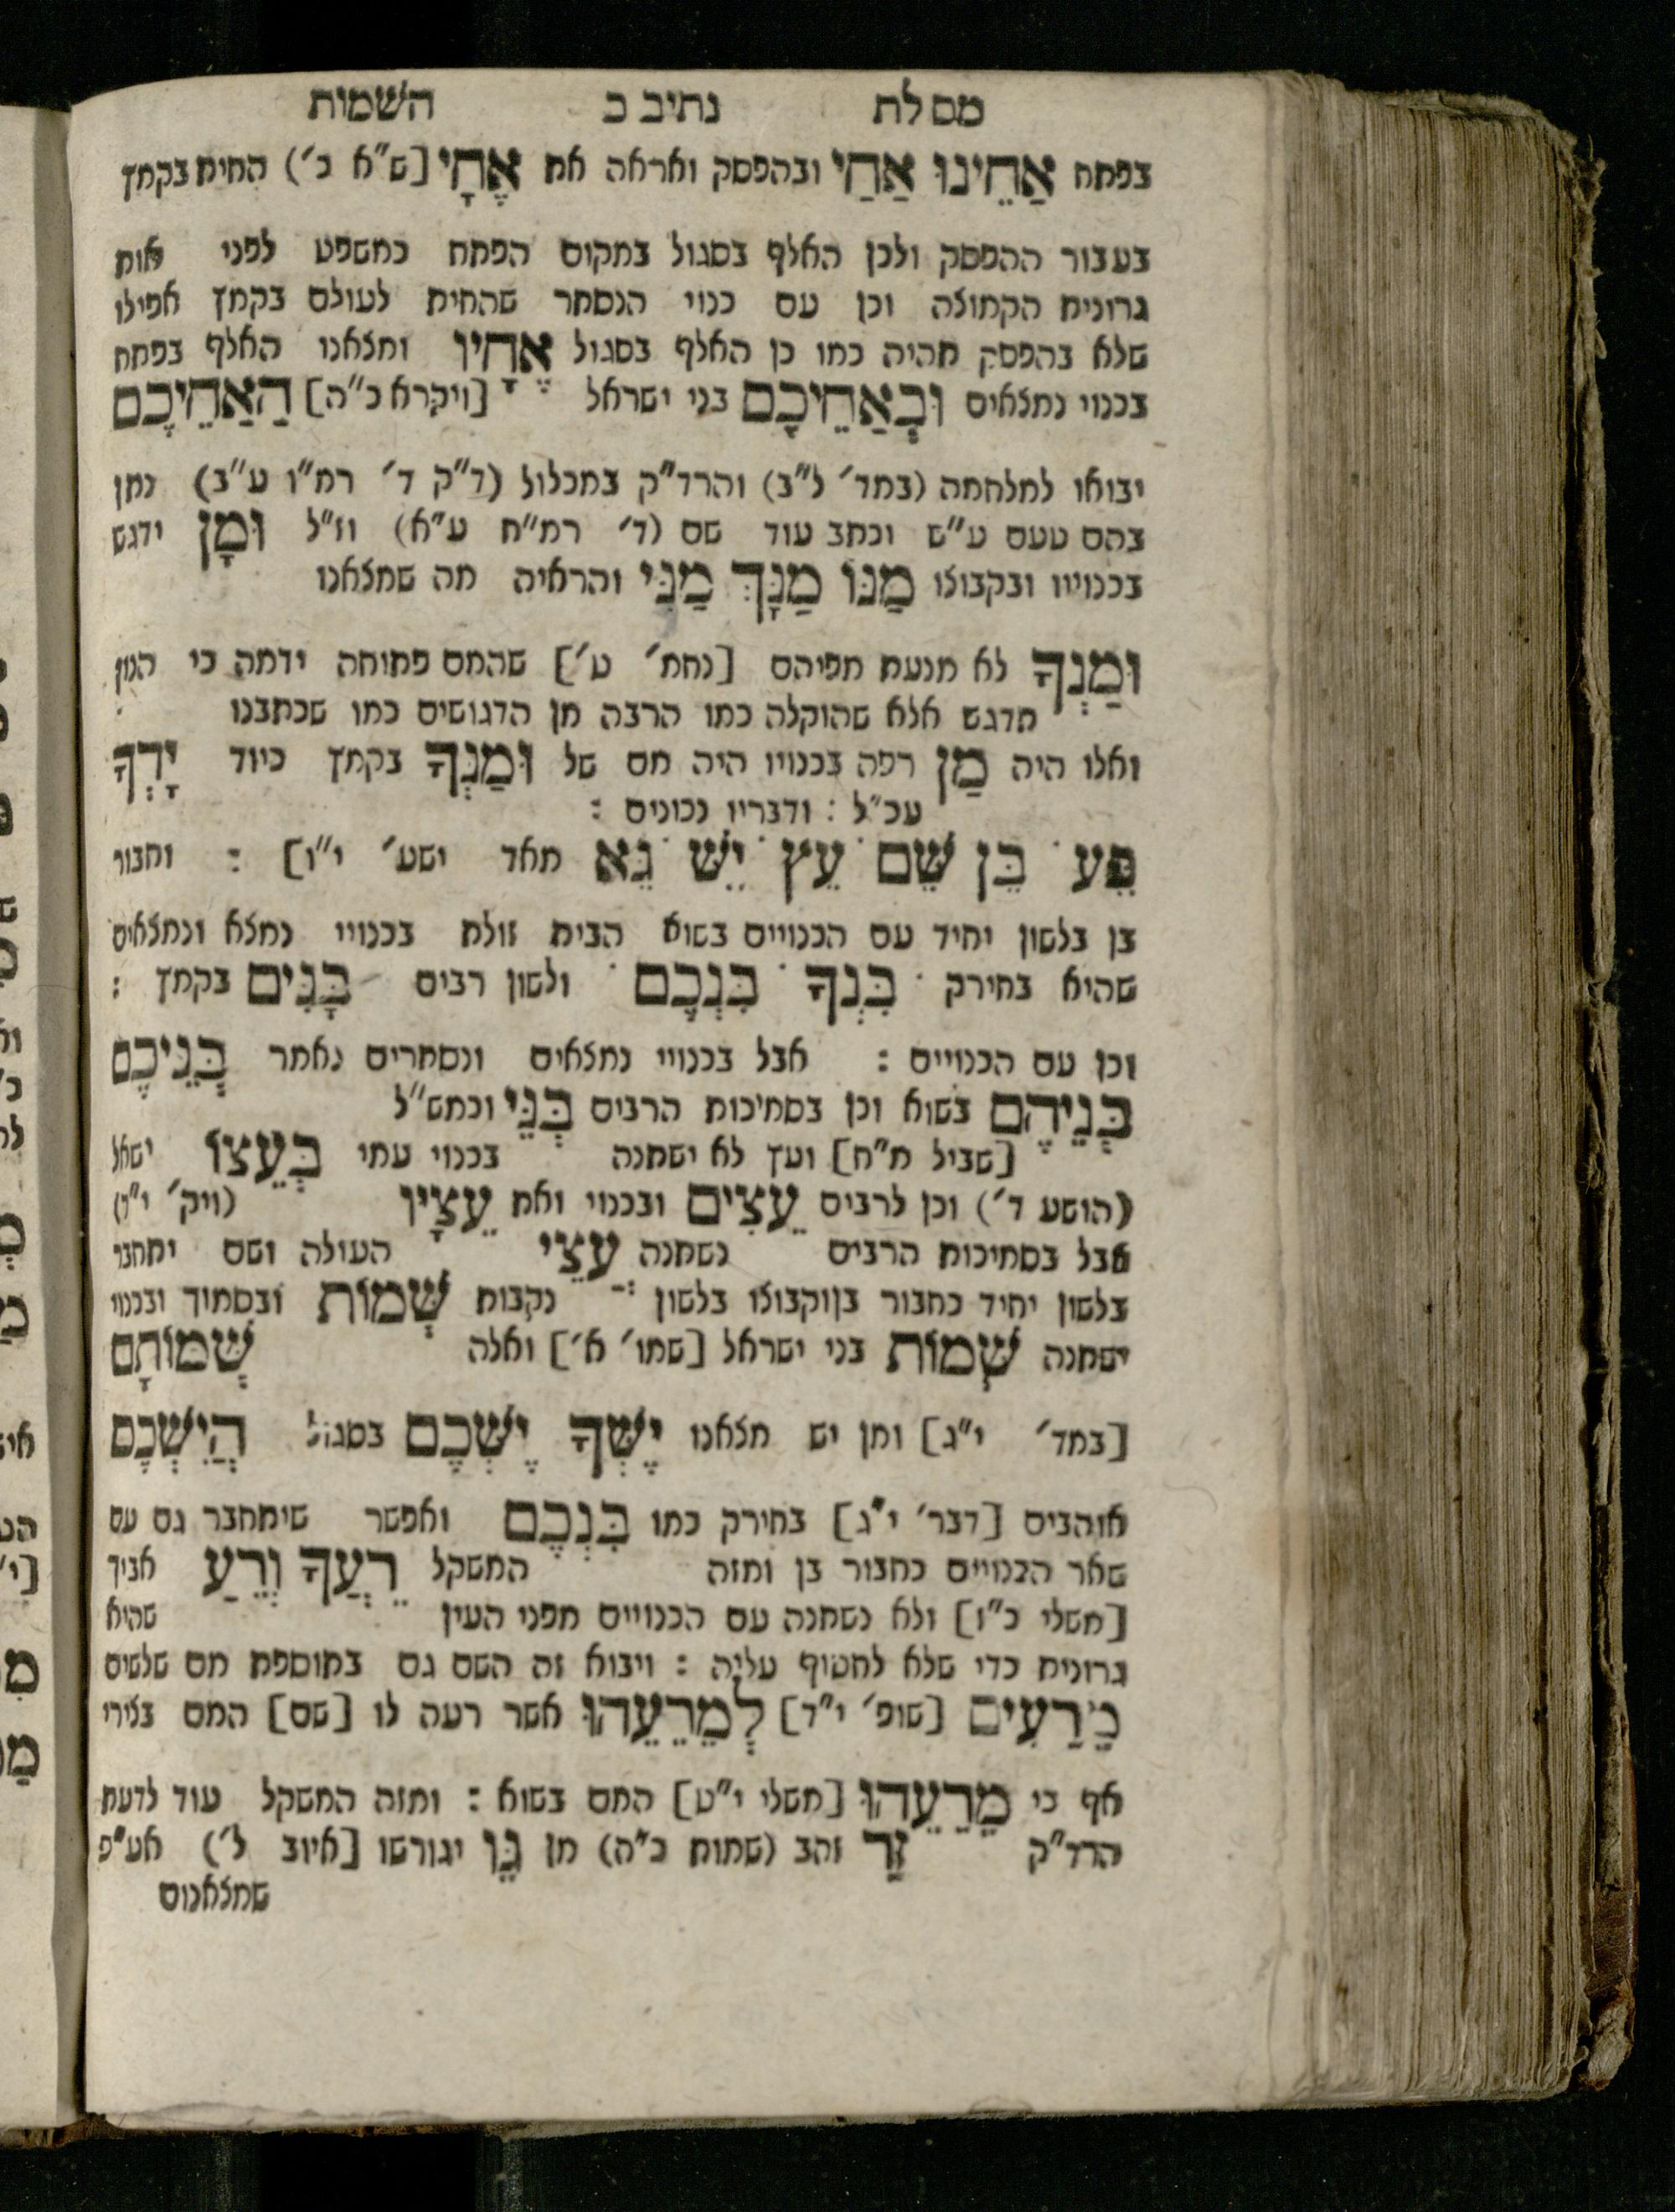 מסלת נתיב כ השמות
בפתח אַחֵינוּ אַחַי ובהפסק ואראה את אֶחָי [ש״א כ׳) החית בקמץ
בעבור ההפסק ולכן האלף בסגול במקום הפתח כמשפט לפני אות
גרונית הקמוצה וכן עם כנוי הנסתר שהחית לעולם בקמץ אפילו
שלא בהפסק תהיה כמו כן האלף בסגול אֶחָיו ומצאנו האלף בפתח
בכנוי נמצאים וּבְאַחֵיכֶם בני ישראל [ויקרא כ״ה] הַאַחֵיכֶם
יבואו למלחמה (במד׳ ל״ב) והרד״ק במכלול (ד״ק ד׳ רמ״ו ע״ב) נתן
בהם טעם ע״ש וכתב עוד שם (ד׳ רמ״ח ע״א) וז״ל וּמָן ידגש
בכנוייו ובקבוצו מַנּוֹ מַנָּךְ מַנִּי והראיה מה שמצאנו
וּמַנְךָ לא מנעת מפיהם [נחמ׳ ט׳] שהמם פתוחה ידמה כי הנון
תדגש אלא שהוקלה כמו הרבה מן הדגושים כמו שכתבנו
ואלו היה מַן רפה בכנויו היה מם של וּמַנְךָ בקמץ כיוד יָדְךָ
עכ״ל : ודבריו נכונים :
פֵּעַ בֵּן שֵׁם עֵץ יֵשׁ גֵּא מאד ישע׳ י״ו] : וחבור
בן בלשון יחיד עם הכנויים בשוא הבית זולת בכנויי נמצא ונמצאים
שהיא בחירק בִּנְךָ בִּנְכֶם ולשון רבים בָּנִּים בקמץ :
וכן עם הכנויים : אבל בכנויי נמצאים ונסתרים נאמר בְּנֵיכֶם
בְּנֵיהֶם בשוא וכן בסמיכות הרבים בְּנֵי וכמש״ל
[שביל ת״ח] ועץ לא ישתנה בכנוי עמי בְּעֵצוֹ ישאל
(הושע ד׳) וכן לרבים עֵצִים ובכנוי ואת עֵצָיו (ויק׳ י״ו)
אבל בסמיכות הרבים נשתנה עֲצֵי העולה ושם יתחבר
בלשון יחיד כחבור בן וקבוצו בלשון נקבות שְׁמוֹת ובסמוך ובכנוי
ישתנה שְׁמוֹת בני ישראל [שמו׳ א׳] ואלה שְׁמוֹתָם
[במד׳ י״ג] ומן יש מצאנו יֶשְׁךָ יֶשְׁכֶם בסגול הֲיִשְׁכֶם
אוהבים [דבר׳ י״ג] בחירק כמו בִּנְכֶם ואפשר שיתחבר גם עם
שאר הכנויים כחבור בן ומזה המשקל רֵעֲךָ וְרֵעַ אביך
[משלי כ״ז] ולא נשתנה עם הכנויים מפני העין שהיא
גרונית כדי שלא לחטוף עליה : ויבוא זה השם גם בתוספת מם שלשים
מֵרֵעִים [שופ׳ י״ד] לְמֵרֵעֵהוּ אשר רעה לו [שם] המם בצירי
אף כי מְרֵעֵהוּ [משלי י״ט] המם בשוא : ומזה המשקל עוד לדעת
הרד״ק זֵר זהב (שמות כ״ה) מן גֵּו יגורשו [איוב ל׳) אע״פ
שמצאנום